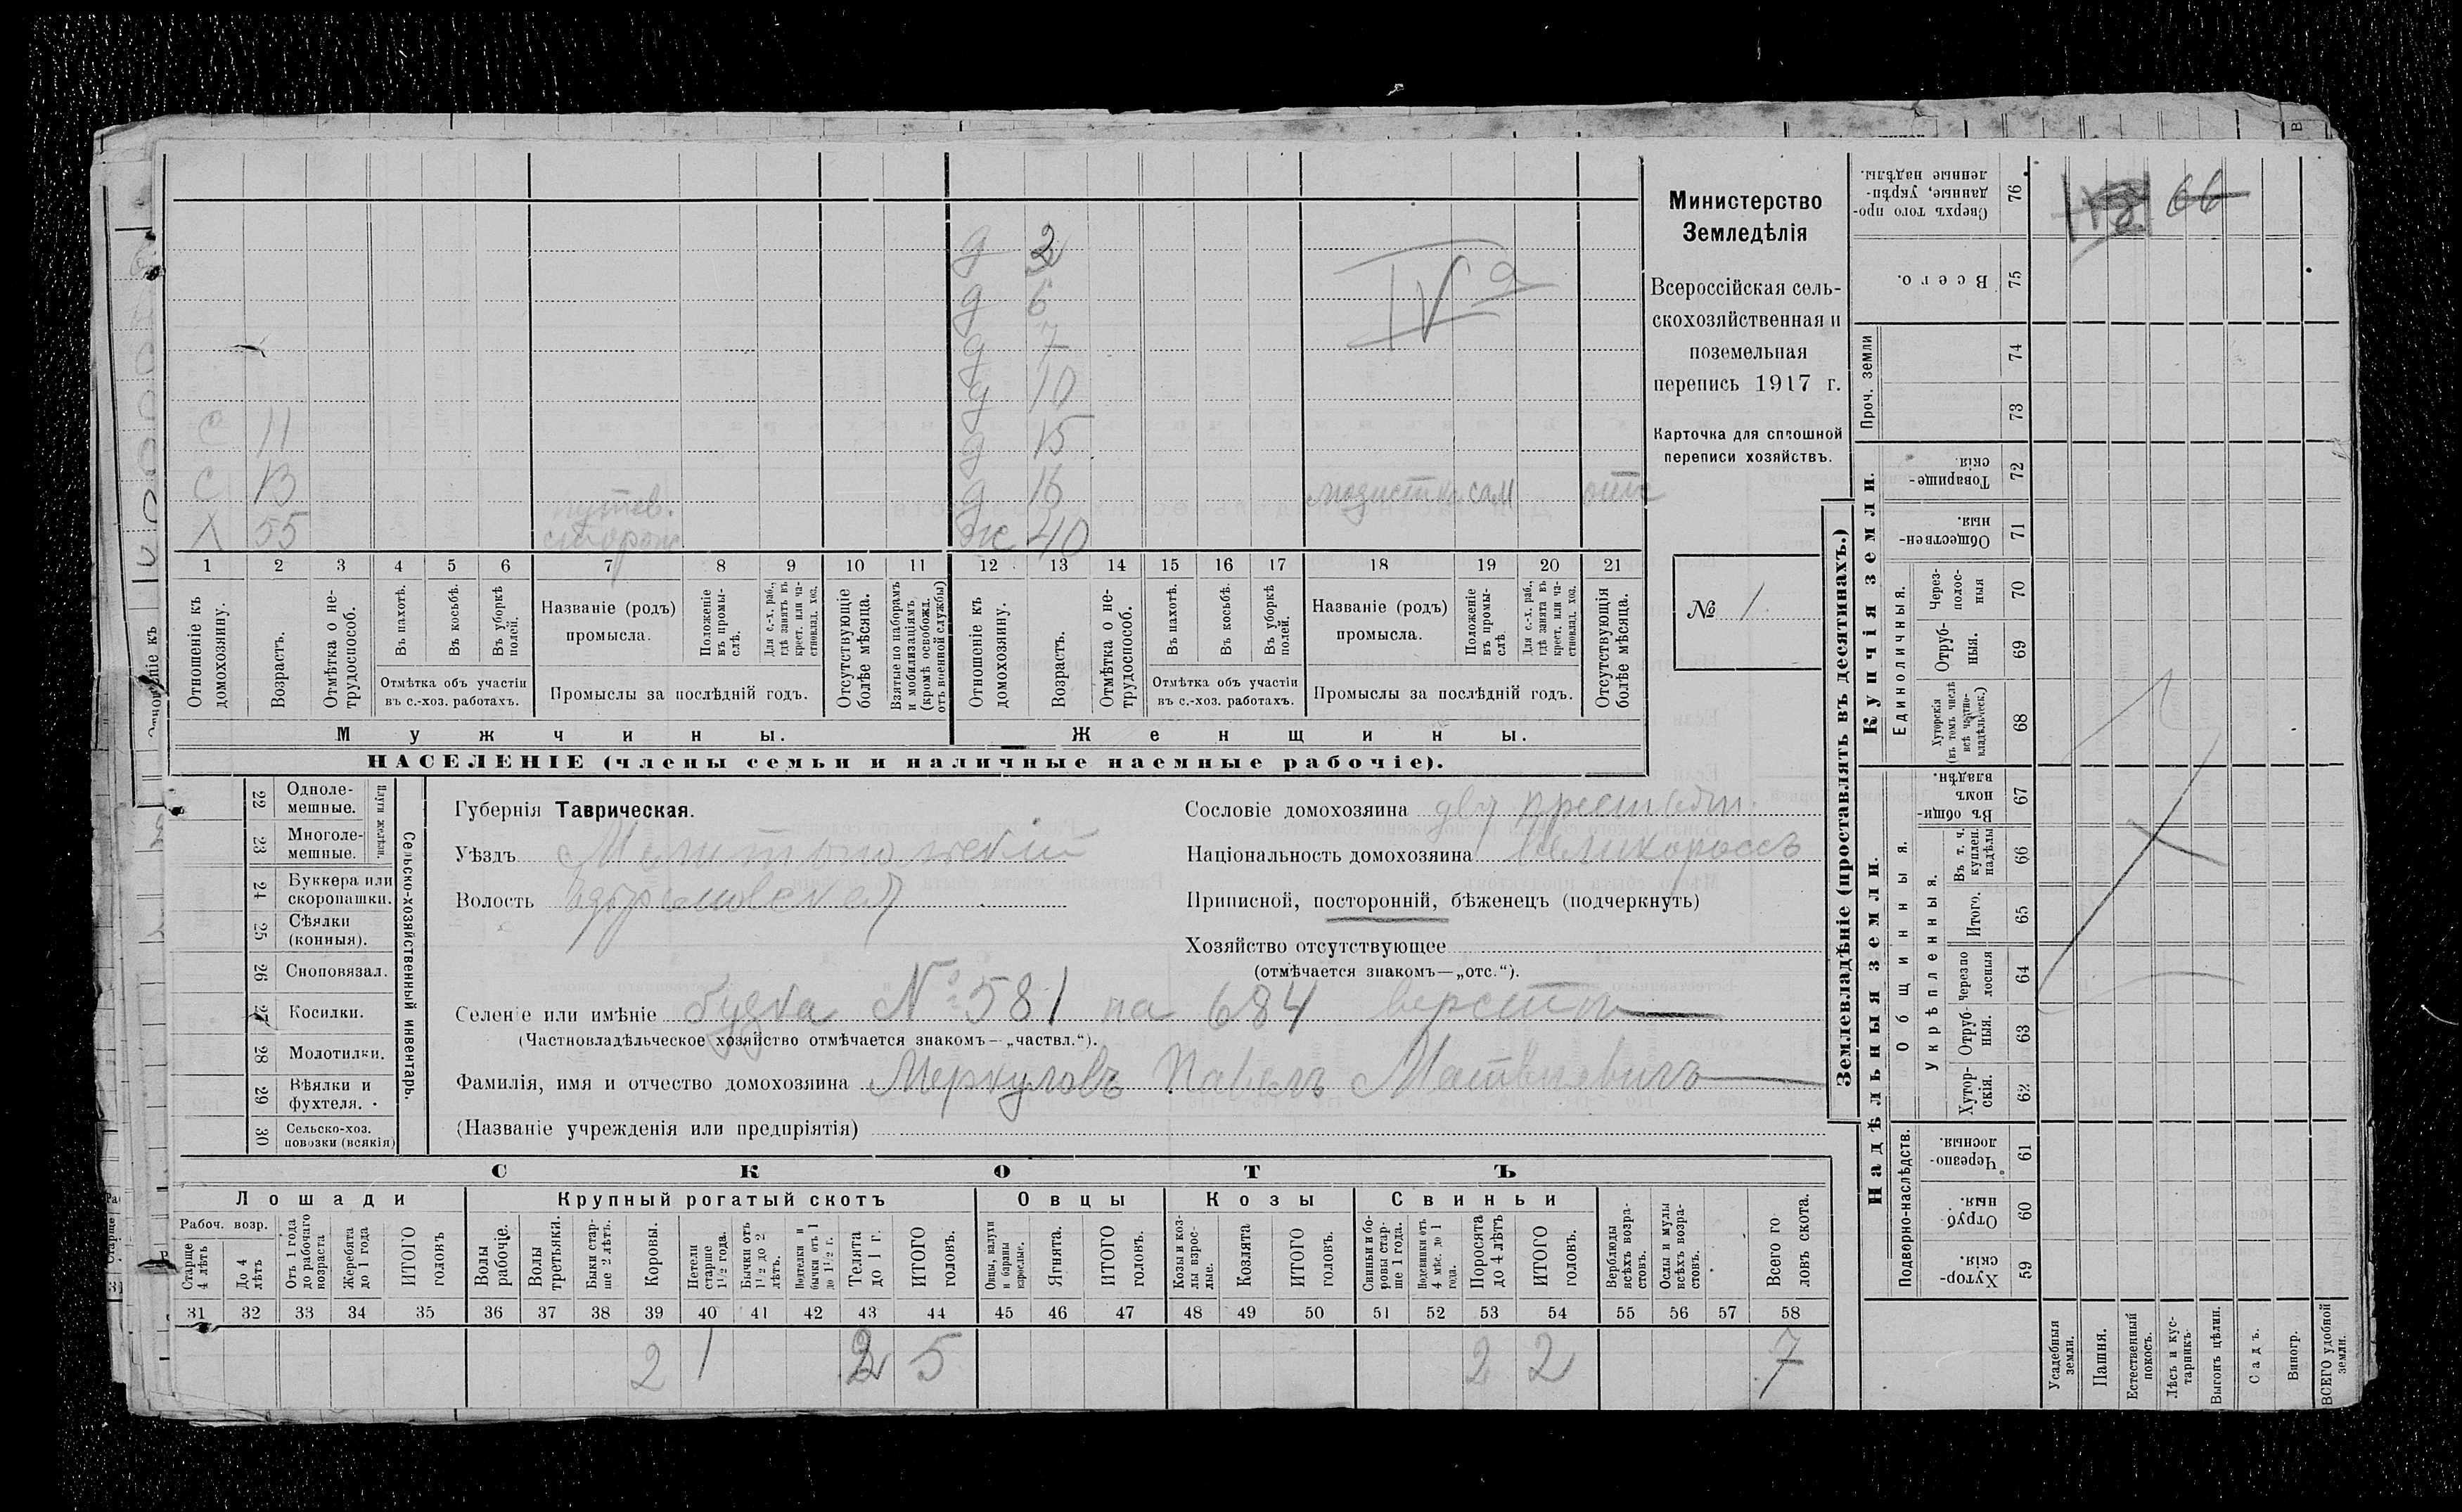 Министерство
Земледѣлія
Всероссійская сель-
скохозяйственная и
поземельная
перепись 1917 г.
Карточка для сплошной
переписи хозяйствъ.
№ 1
IV а
66
д 6
д 7
д 10
С 11 д 15
С 13 д 16 модистка сам
Х 55 путев. сторож ж 40
1 2 3 4 5 6 7 8 9 10 11 12 13 14 15 16 17 18 19 20 21
Отношеніе къ домохозяину.
Возрастъ.
Отмѣтка о не-трудоспособ.
Въ пахотѣ.
Въ косьбѣ.
Въ уборкѣ полей.
Отмѣтка объ участіи въ с.-хоз. работахъ.
Названіе (родъ) промысла.
Положеніе въ промы-слѣ.
Для с.-х. раб., гдѣ занятъ въ крест. или ча-стновлад. хоз.
Промыслы за послѣдній годъ.
Отсутствующіе болѣе мѣсяца.
Взятые по наборамъ и мобилизаціямъ (кромѣ освобожд. отъ военной службы)
Отношеніе къ домохозяину.
Возрастъ.
Отмѣтка о не-трудоспособ.
Въ пахотѣ.
Въ косьбѣ.
Въ уборкѣ полей.
Отмѣтка объ участіи въ с.-хоз. работахъ.
Названіе (родъ) промысла.
Положеніе въ промы-слѣ.
Для с.-х. раб., гдѣ занята въ крест. или ча-стновлад. хоз.
Промыслы за послѣдній годъ.
Отсутствующія болѣе мѣсяца.
Мужчины. Женщины.
НАСЕЛЕНІЕ (члены семьи и наличные наемные рабочіе).
22 Одноле-мешные.
23 Многоле-мешные.
Плуги желѣзн.
24 Буккера или скоропашки.
25 Сѣялки (конныя).
26 Сноповязал.
27 Косилки.
28 Молотилки.
29 Вѣялки и фухтеля.
30 Сельско-хоз. повозки (всякія)
Сельско-хозяйственный инвентарь.
Губернія Таврическая.
Уѣздъ Мелитопольскій
Волость
Сословіе домохозяина
Національность домохозяина Великороссъ
Приписной, посторонній, бѣженецъ (подчеркнуть)
Хозяйство отсутствующее
(отмѣчается знакомъ—„отс.“).
Селеніе или имѣніе будка № 581 на 684 верстѣ
(Частновладѣльческое хозяйство отмѣчается знакомъ—„частвл.“).
Фамилія, имя и отчество домохозяина Меркуловъ Павелъ Матвѣевичъ
(Названіе учрежденія или предпріятія)
СКОТЪ
Лошади Крупный рогатый скотъ Овцы Козы Свиньи
Рабоч. возр.
Старше 4 лѣтъ
До 4 лѣтъ
Отъ 1 года до рабочаго возраста
Жеребята до 1 года
ИТОГО головъ
Волы рабочіе.
Волы третьяки.
Быки стар-ше 2 лѣтъ.
Коровы.
Нетели старше 1½ года.
Бычки отъ 1½ до 2 лѣтъ.
Нетелки и бычки отъ 1 до 1½ г.
Телята до 1 г.
ИТОГО головъ.
Овцы, валухи и бараны взрослые.
Ягнята.
ИТОГО головъ.
Козы и коз-лы взрос-лые.
Козлята
ИТОГО головъ.
Свиньи и бо-ровы стар-ше 1 года.
Подсвинки отъ 4 мѣс. до 1 года.
Поросята до 4 лѣтъ
ИТОГО головъ.
Верблюды всѣхъ возра-стовъ.
Ослы и мулы всѣхъ возра-стовъ.
Всего го ловъ скота.
31 32 33 34 35 36 37 38 39 40 41 42 43 44 45 46 47 48 49 50 51 52 53 54 55 56 57 58
2 1 2 5 2 2 7
Землевладѣніе (проставлять въ десятинахъ.)
Надѣльныя земли. Купчія земли. Проч. земли
Подворно-наслѣдств.
Общинныя.
Укрѣпленныя.
Единоличныя.
76 Сверхъ того про-данные, укрѣп-ленные надѣлы.
75 Всего.
74
73
72 Товарище-скія.
71 Обществен-ныя.
70 Через-полос-ныя
69 Отруб-ныя.
68 Хуторскія (въ томъ числѣ всѣ частно-владѣльческ.)
67 Въ общин-номъ владѣн.
66 Въ т. ч. куплен. надѣлы
65 Итого.
64 Черезпо лосныя
63 Отруб-ныя.
62 Хутор-скія.
61 Черезпо-лосныя.
60 Отруб ныя.
59 Хутор-скія.
Усадебныя земли.
Пашня.
Естественный покосъ.
Лѣсъ и кус-тарникъ
Выгонъ цѣлин.
Садъ.
Виногр.
ВСЕГО удобной земли.